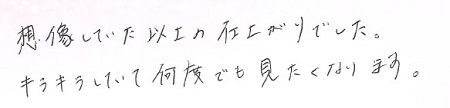 想像していた以上の仕上がりでした。
キラキラしていて何度でも見たくなります。